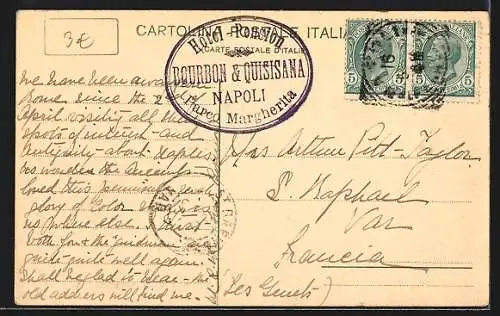 3€
CARTOLINA POSTALE ITALIANA
CARTE POSTALE D'ITALIE
Hotel Pension
BOURBON & QUISISANA
NAPOLI
Parco Margherita
5 5
We have been away from
Rome since the 2
April visiting all the
spots of interest and
antiquity about Naples.
No wonder the Ancients
loved this peninsula
glory of color
no where else. I trust
both you & the
quite quite well again.
Shall be glad to hear - the
old address will find me.
Mrs Arthur Pitt-Taylor
St. Raphael
Var
Francia
(Les Genets)